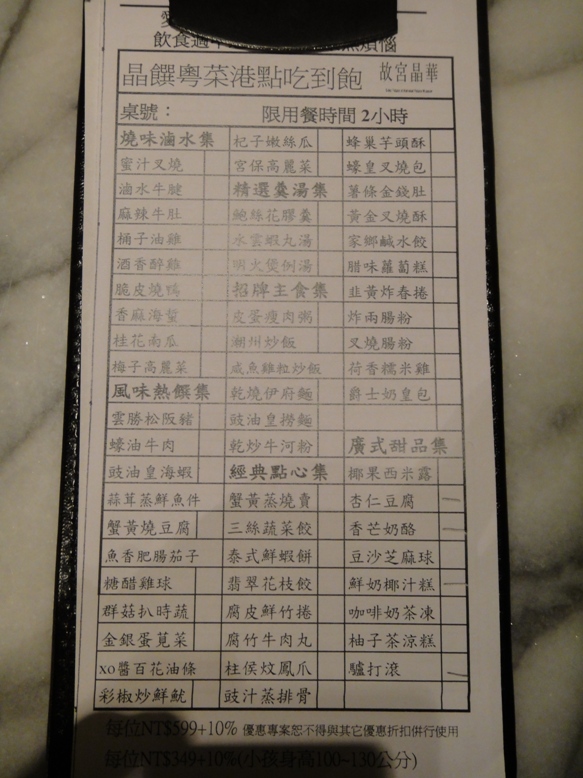 飲食過
煩惱
晶饌粵菜港點吃到飽 故宮晶華
桌號： 限用餐時間 2小時
燒味滷水集 杞子嫩絲瓜 蜂巢芋頭酥
蜜汁叉燒 宮保高麗菜 蠔皇叉燒包
滷水牛腱 精選羹湯集 薯條金錢肚
麻辣牛肚 鮑絲花膠羹 黃金叉燒酥
桶子油雞 水雲蝦丸湯 家鄉鹹水餃
酒香醉雞 明火煲例湯 腊味蘿蔔糕
脆皮燒鴨 招牌主食集 韭黃炸春捲
香麻海蜇 皮蛋瘦肉粥 炸兩腸粉
桂花南瓜 潮州炒飯 叉燒腸粉
梅子高麗菜 咸魚雞粒炒飯 荷香糯米雞
風味熱饌集 乾燒伊府麵 爵士奶皇包
雲勝松阪豬 豉油皇撈麵
蠔油牛肉 乾炒牛河粉 廣式甜品集
豉油皇海蝦 經典點心集 椰果西米露
蒜茸蒸鮮魚件 蟹黃蒸燒賣 杏仁豆腐
蟹黃燒豆腐 三絲蔬菜餃 香芒奶酪
魚香肥腸茄子 泰式鮮蝦餅 豆沙芝麻球
糖醋雞球 翡翠花枝餃 鮮奶椰汁糕
群菇扒時蔬 腐皮鮮竹捲 咖啡奶茶凍
金銀蛋莧菜 腐竹牛肉丸 柚子茶涼糕
xo醬百花油條 柱侯炆鳳爪 驢打滾
彩椒炒鮮魷 豉汁蒸排骨
每位NT$599+10% 優惠專案恕不得與其它優惠折扣併行使用
每位NT$349+10%(小孩身高100~130公分)